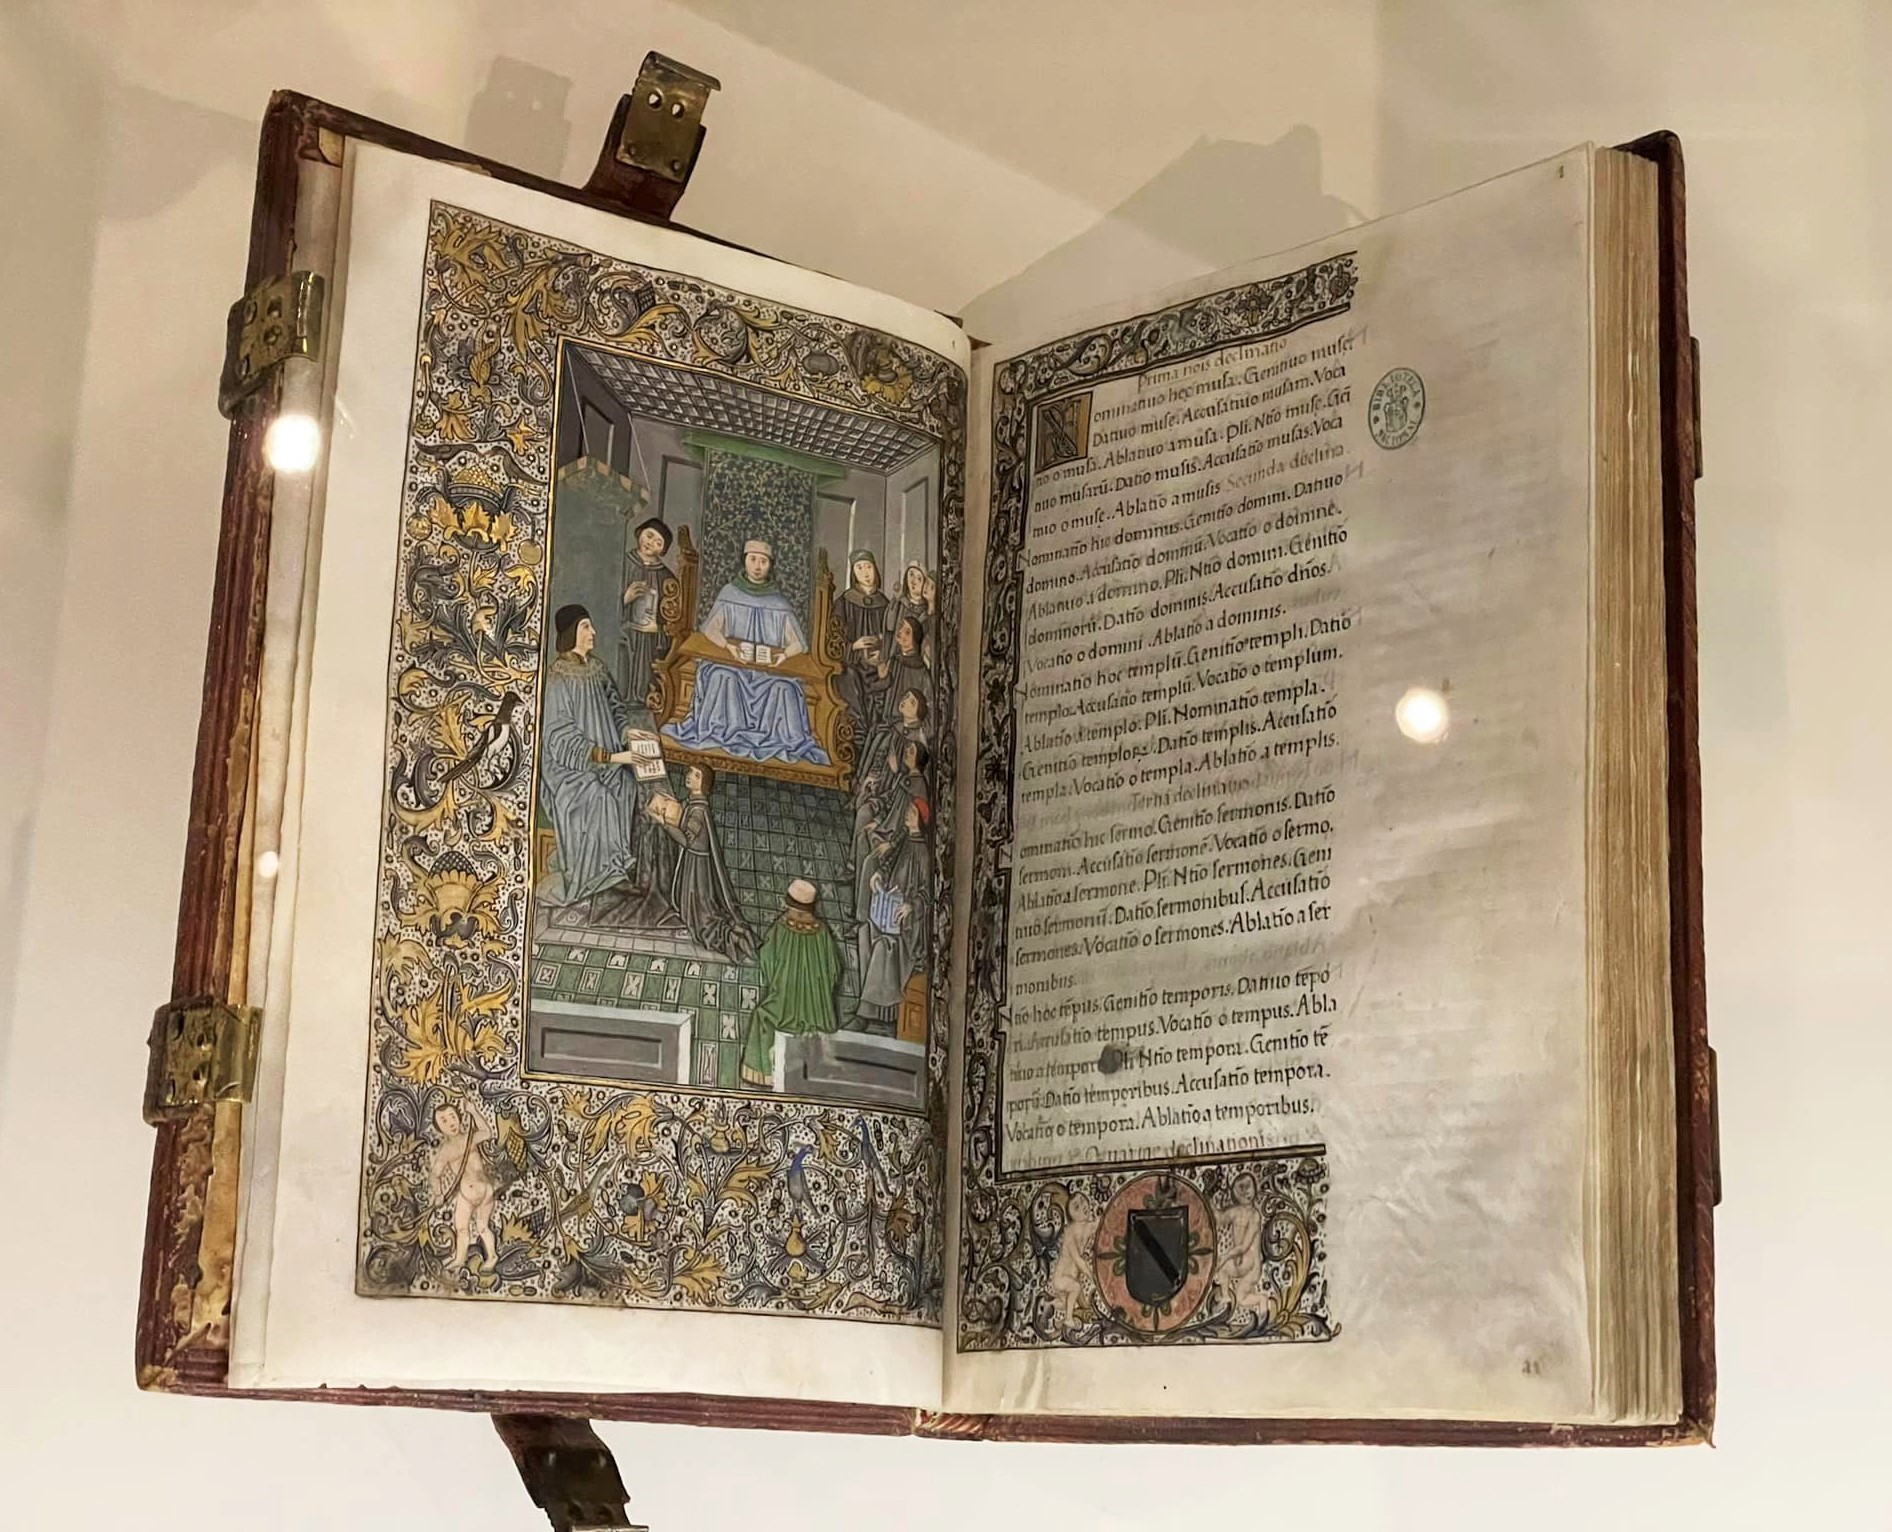 1
Prima nois declinatio
Nominatiuo hec musa. Genitiuo muse
Datiuo muse. Accusatiuo musam. Voca
tiuo o musa. Ablatiuo a musa. Pli. Ntio muse. Geni
tiuo musarū. Datio musis. Accusatio musas. Voca
tiuo o muse. Ablatio a musis Secunda declina
Nominatio hic dominus. Genitio domini. Datiuo
domino. Accusatio dominū. Vocatio o domine.
Ablatiuo a domino. Pli. Ntio domini. Genitio
dominorū. Datio dominis. Accusatio dños.
Vocatio o domini. Ablatio a dominis.
Nominatio hoc templū. Genitio templi. Datio
templo. Accusatio templū. Vocatio o templum.
Ablatio a templo. Pli. Nominatio templa.
Genitio templorꝝ. Datio templis. Accusatio
templa. Vocatio o templa. Ablatio a templis.
Tertia declinatio
Nominatio hic sermo. Genitio sermonis. Datio
sermoni. Accusatio sermonē. Vocatio o sermo.
Ablatio a sermone. Pli. Ntio sermones. Geni
tiuo sermonū. Datio sermonibus. Accusatio
sermones. Vocatio o sermones. Ablatio a ser
monibus.
Ntio hoc tēpus. Genitio temporis. Datiuo tēpo
ri. Accusatio tempus. Vocatio o tempus. Abla
tiuo a tempore Pli. Ntio tempora. Genitio tē
porū. Datio temporibus. Accusatio tempora.
Vocatio o tempora. Ablatio a temporibus.
Quartae declinationis
BIBLIOTECA NACIONAL